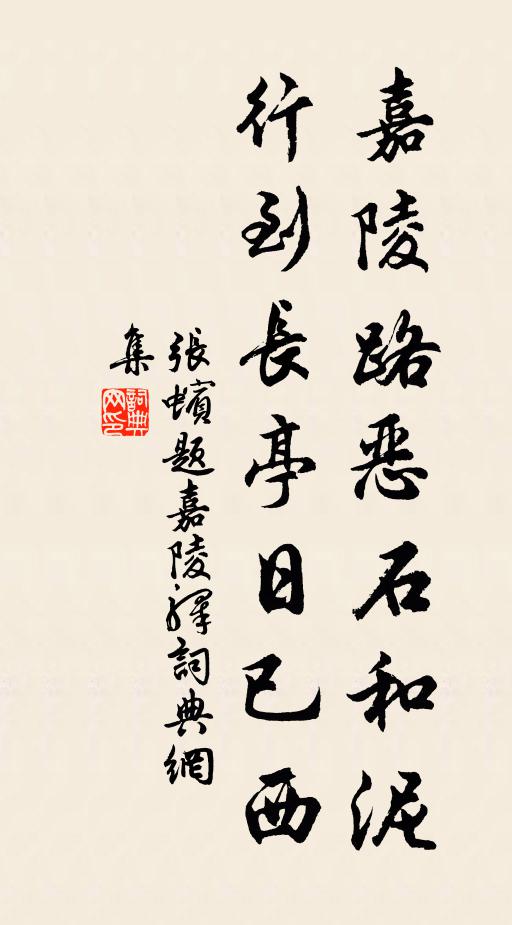 嘉陵路恶石和泥
行到長亭日已西
張蠙题嘉陵驛詞典網
集
詞典
网印